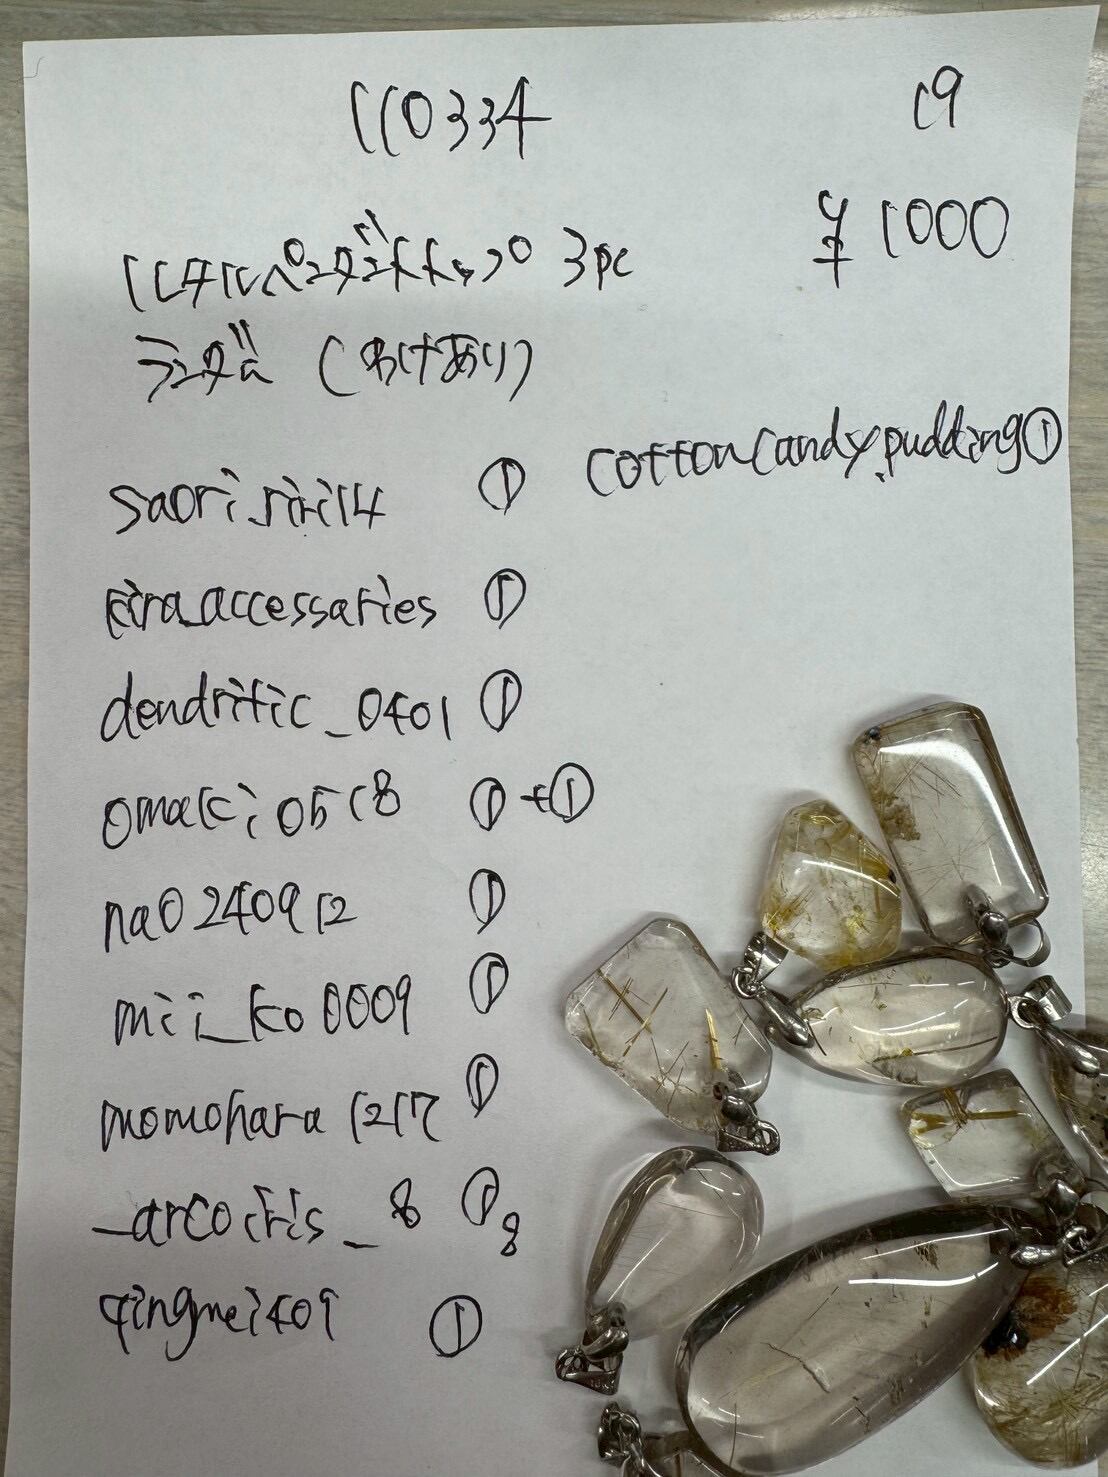 110334
19
¥1000
ルチルペンダントトップ 3pc
ランダム (わけあり)
cottoncandy.pudding①
saori.riri14 ①
kira_accessaries ①
dendritic_0401 ①
omaki0518 ①+①
na0240912 ①
mii_ko0009 ①
momohara1217 ①
_arcoiris_8 ①8
qingmei401 ①